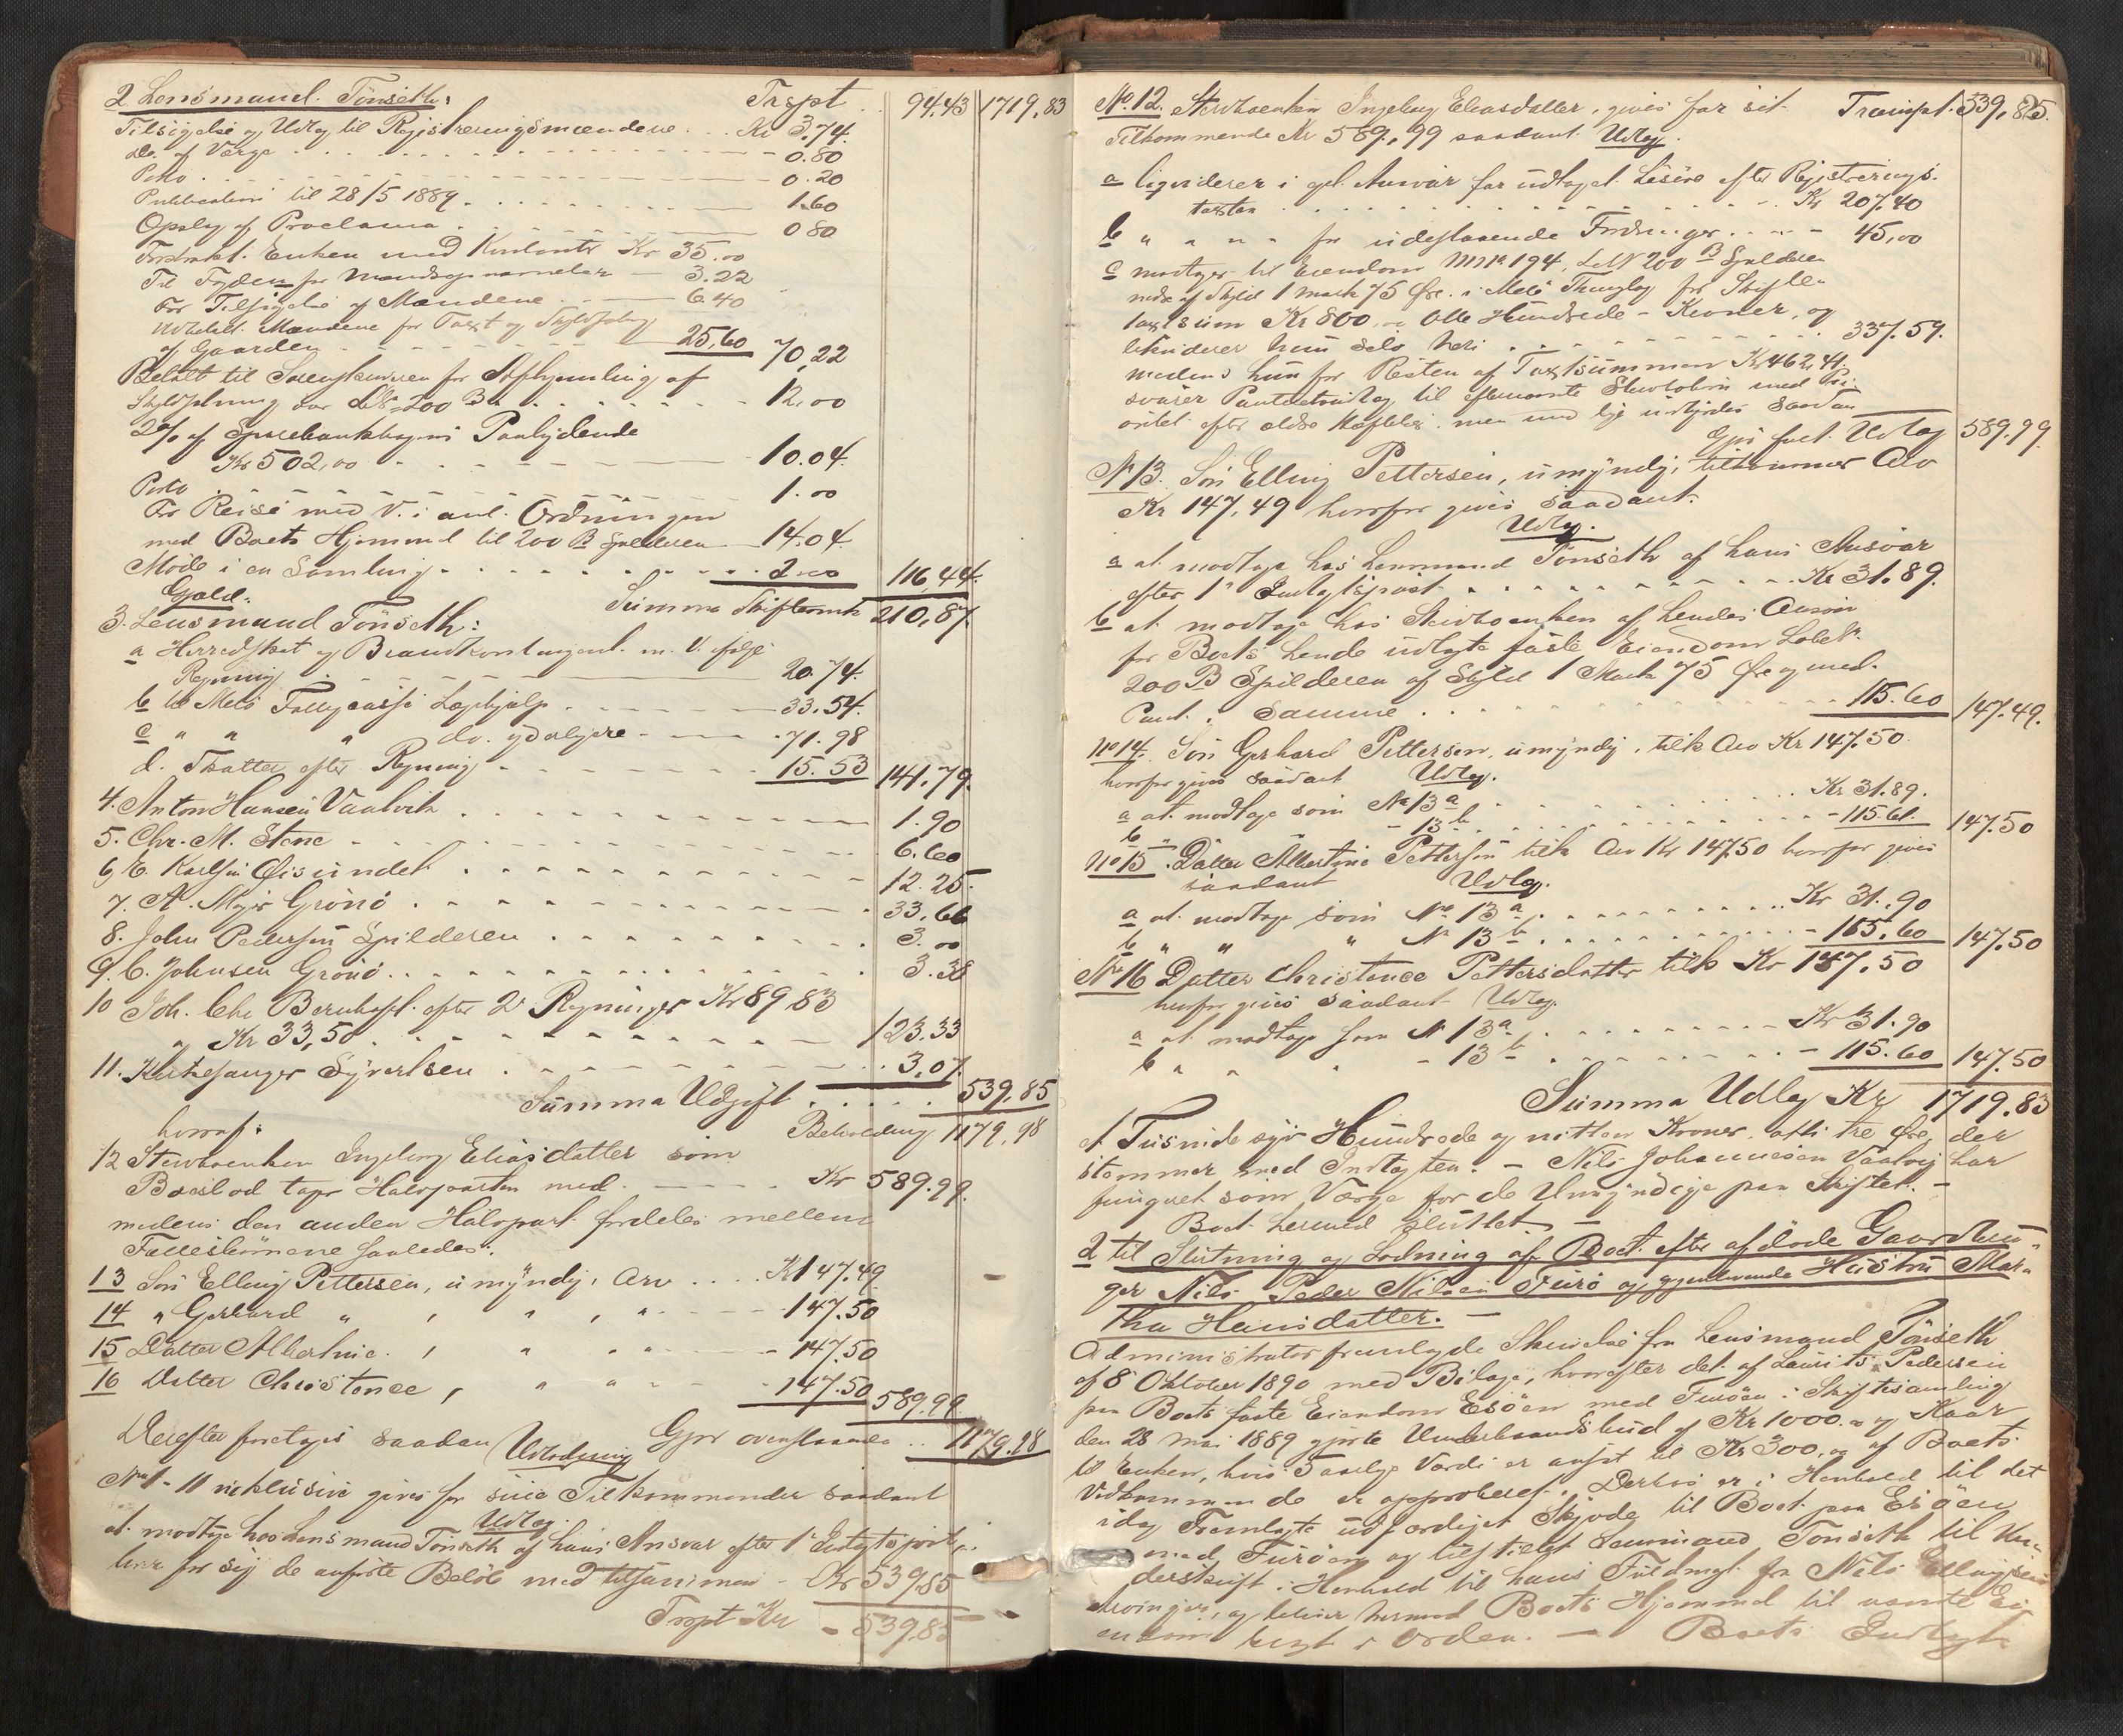 2 Lensmand Tönseth: Trspt 94.43 1719,83
Tilsigelse og Udlæg til Registreringsmændene Kr 3,74.
Do. af Værge - 0.80
Porto - 0.20
Publication til 28/5 1889 1.60
Opslag af Proclama 0 80
Forstrakt Enken med Kontant Kr 35.00
Til Fogden for Mandsopnævnelse - 3.22
For Tilsigelse af Mændene - 6.40
Udbetalt Mændene for Taxt og Skyldsætn
af Gaarden 25,60 70,22
Betalt til Sorenskriveren for Afhjemling af
Skyldsætning over LNr 200 B 12,00
2% af Sparebankbogens Paalydende
Kr 502,00 10.04.
Porto 1.00
For Reise med V. i anl. Ordningen
med Boets Hjemmel til 200 B Spilderen 14.04.
Möde i en Samling 2.00 116,44.
Gjæld. Summa Skifteomk 210,87.
3. Lensmand Tönseth:
a Herredskat og Brandkontingent m. V. ifölge
Regning 20.74.
b til Melö Fattigcasse Lægehjælp 33.54.
c " " " do. yderligere 71.98
d. Skatter efter Regning 15.53 141.79.
4. Anton Hansen Vaatvik 1.90
5. Chr. M. Stene 6.60
6, E. Karlsen Øisundet 12.25.
7. A. Meyer Grönö 33.66
8. John Pedersen Spilderen 3.00
9. C. Johnsen Grönö 3.38
10 Joh. Chr Bernhoft efter 2 Regninger Kr 89,83
og Kr 33,50 123.33
11. Kirkesanger Syvertsen 3.07.
Summa Udgift 539,85
hvoraf: Beholdning 1179,98
12 Stervboenken Ingeborg Eliasdatter som
Boeslod tager Halvparten med Kr 589.99.
medens den anden Halvpart fordeles mellem
Fællesbörnene saaledes:
13 Sön Elling Pettersen, umyndig, Arv Kr 147.49
14 " Gerhard " , " , " - 147.50
15 Datter Albertine , " " " - 147.50
16 Datter Christence , " " - 147.50 589.99
Gjör ovenstaaende 1179.98
Derefter foretoges saadan Udlodning
Nr 1 - 11 inklusive gives for sine Tilkommender saadant
Udlæg.
at modtage hos Lensmand Tönseth af hans Ansvar efter 1e Indtægtspost
hver for sig de anförte Belöb med tilsammen Kr 539,85
Trspt Kr - 539.85
No. 12. Stervboenken Ingeborg Eliasdatter, gives for sit Transpt. 539,85.
Tilkommende Kr 589,99 saadant Udlæg.
a liqviderer i get Ansvar for udtaget Lösöre efter Registrerings-
taxten Kr 207.40
b " " " " for udestaaende Fordringer - 45,00
c modtager hel Eiendom MNr 194, LNr 200 B Spilderen
nedre af Skyld 1 mark 75 Øre i Melö Thinglag for Skifte-
taxtsum Kr 800, Otte Hundrede - Kroner, og
likviderer hun selv heri 337.59.
medens hun for Resten af Taxtsummen Kr 462,41
svarer Panteudlæg til efternævnte Stervbobörn med Pri-
oritet efter ældre Hæftelser, men med lige indbyrdes saadan
Gjör fuldt Udlæg 589.99.
No 13. Sön Elling Pettersen, umyndig, tilkommer Arv
Kr 147,49 hvorfor gives saadant
Udlæg.
a at modtage hos Lensmand Tönseth af hans Ansvar
efter 1e Indtægtspost Kr 31.89.
b at modtage hos Stervboenken af hendes Ansvar
for Boets hende udlagte faste Eiendom LöbeNr
200 B Spilderen af Skyld 1 Mark 75 Øre og med
Pant i Samme 115.60 147.49.
No 14. Sön Gerhard Pettersen, umyndig, tilk Arv Kr 147.50
hvorfor gives saadant Udlæg.
a at modtage som No 13 a Kr 31.89.
b " - 13 b - 115.61. 147.50
No 15. Datter Albertine Pettersen tilk Arv Kr 147.50 hvorfor gives
saadant Udlæg.
a at modtage som No 13 a Kr 31.90
b " " " No 13 b - 115.60 147.50
No 16 Datter Christence Pettersdatter tilk Kr 147.50
hvorfor gives saadant Udlæg.
a at modtage som No 13 a Kr 31.90
b " " " - 13 b - 115.60 147.50
Summa Udlæg Kr 1719.83
et Tusinde syv Hundrede og nitten Kroner, otti tre Öre, der
stemmer med Indtægten. - Nils Johannesen Vaatvig har
fungeret som Værge for de Umyndige paa Skiftet. -
Boet hermed sluttet. -
2 til Slutning og Lodning af Boet efter afdöde Gaardbru-
ger Nils Peder Nilsen Furö og gjenlevende Hustru Mar-
tha Hansdatter. -
Administrator fremlagde Skrivelse fra Lensmand Tönseth
af 8 Oktober 1890 med Bilage, hvorefter det af Laurits Pedersen
paa Boets faste Eiendom Esöen med Furöen i Skiftesamling
den 28 Mai 1889 gjorte Underhaandsbud af Kr 1000. og Kaar
til Enken, hvis 5 aarlige Værdi er ansat til Kr 300, og af Boets
Vedkommende er approberet. Derhos er i Henhold til det
idag Fremlagte udfærdiget Skjöde til Boet paa Esöen
med Furöen og tilstillet Lensmand Tönseth til Un-
derskrift i Henhold til hans Fuldmagt fra Nils Ellingsens
Arvinger, og bliver hermed Boets Hjemmel til nævnte Ei-
endom bragt i Orden. - Boets Indtægt